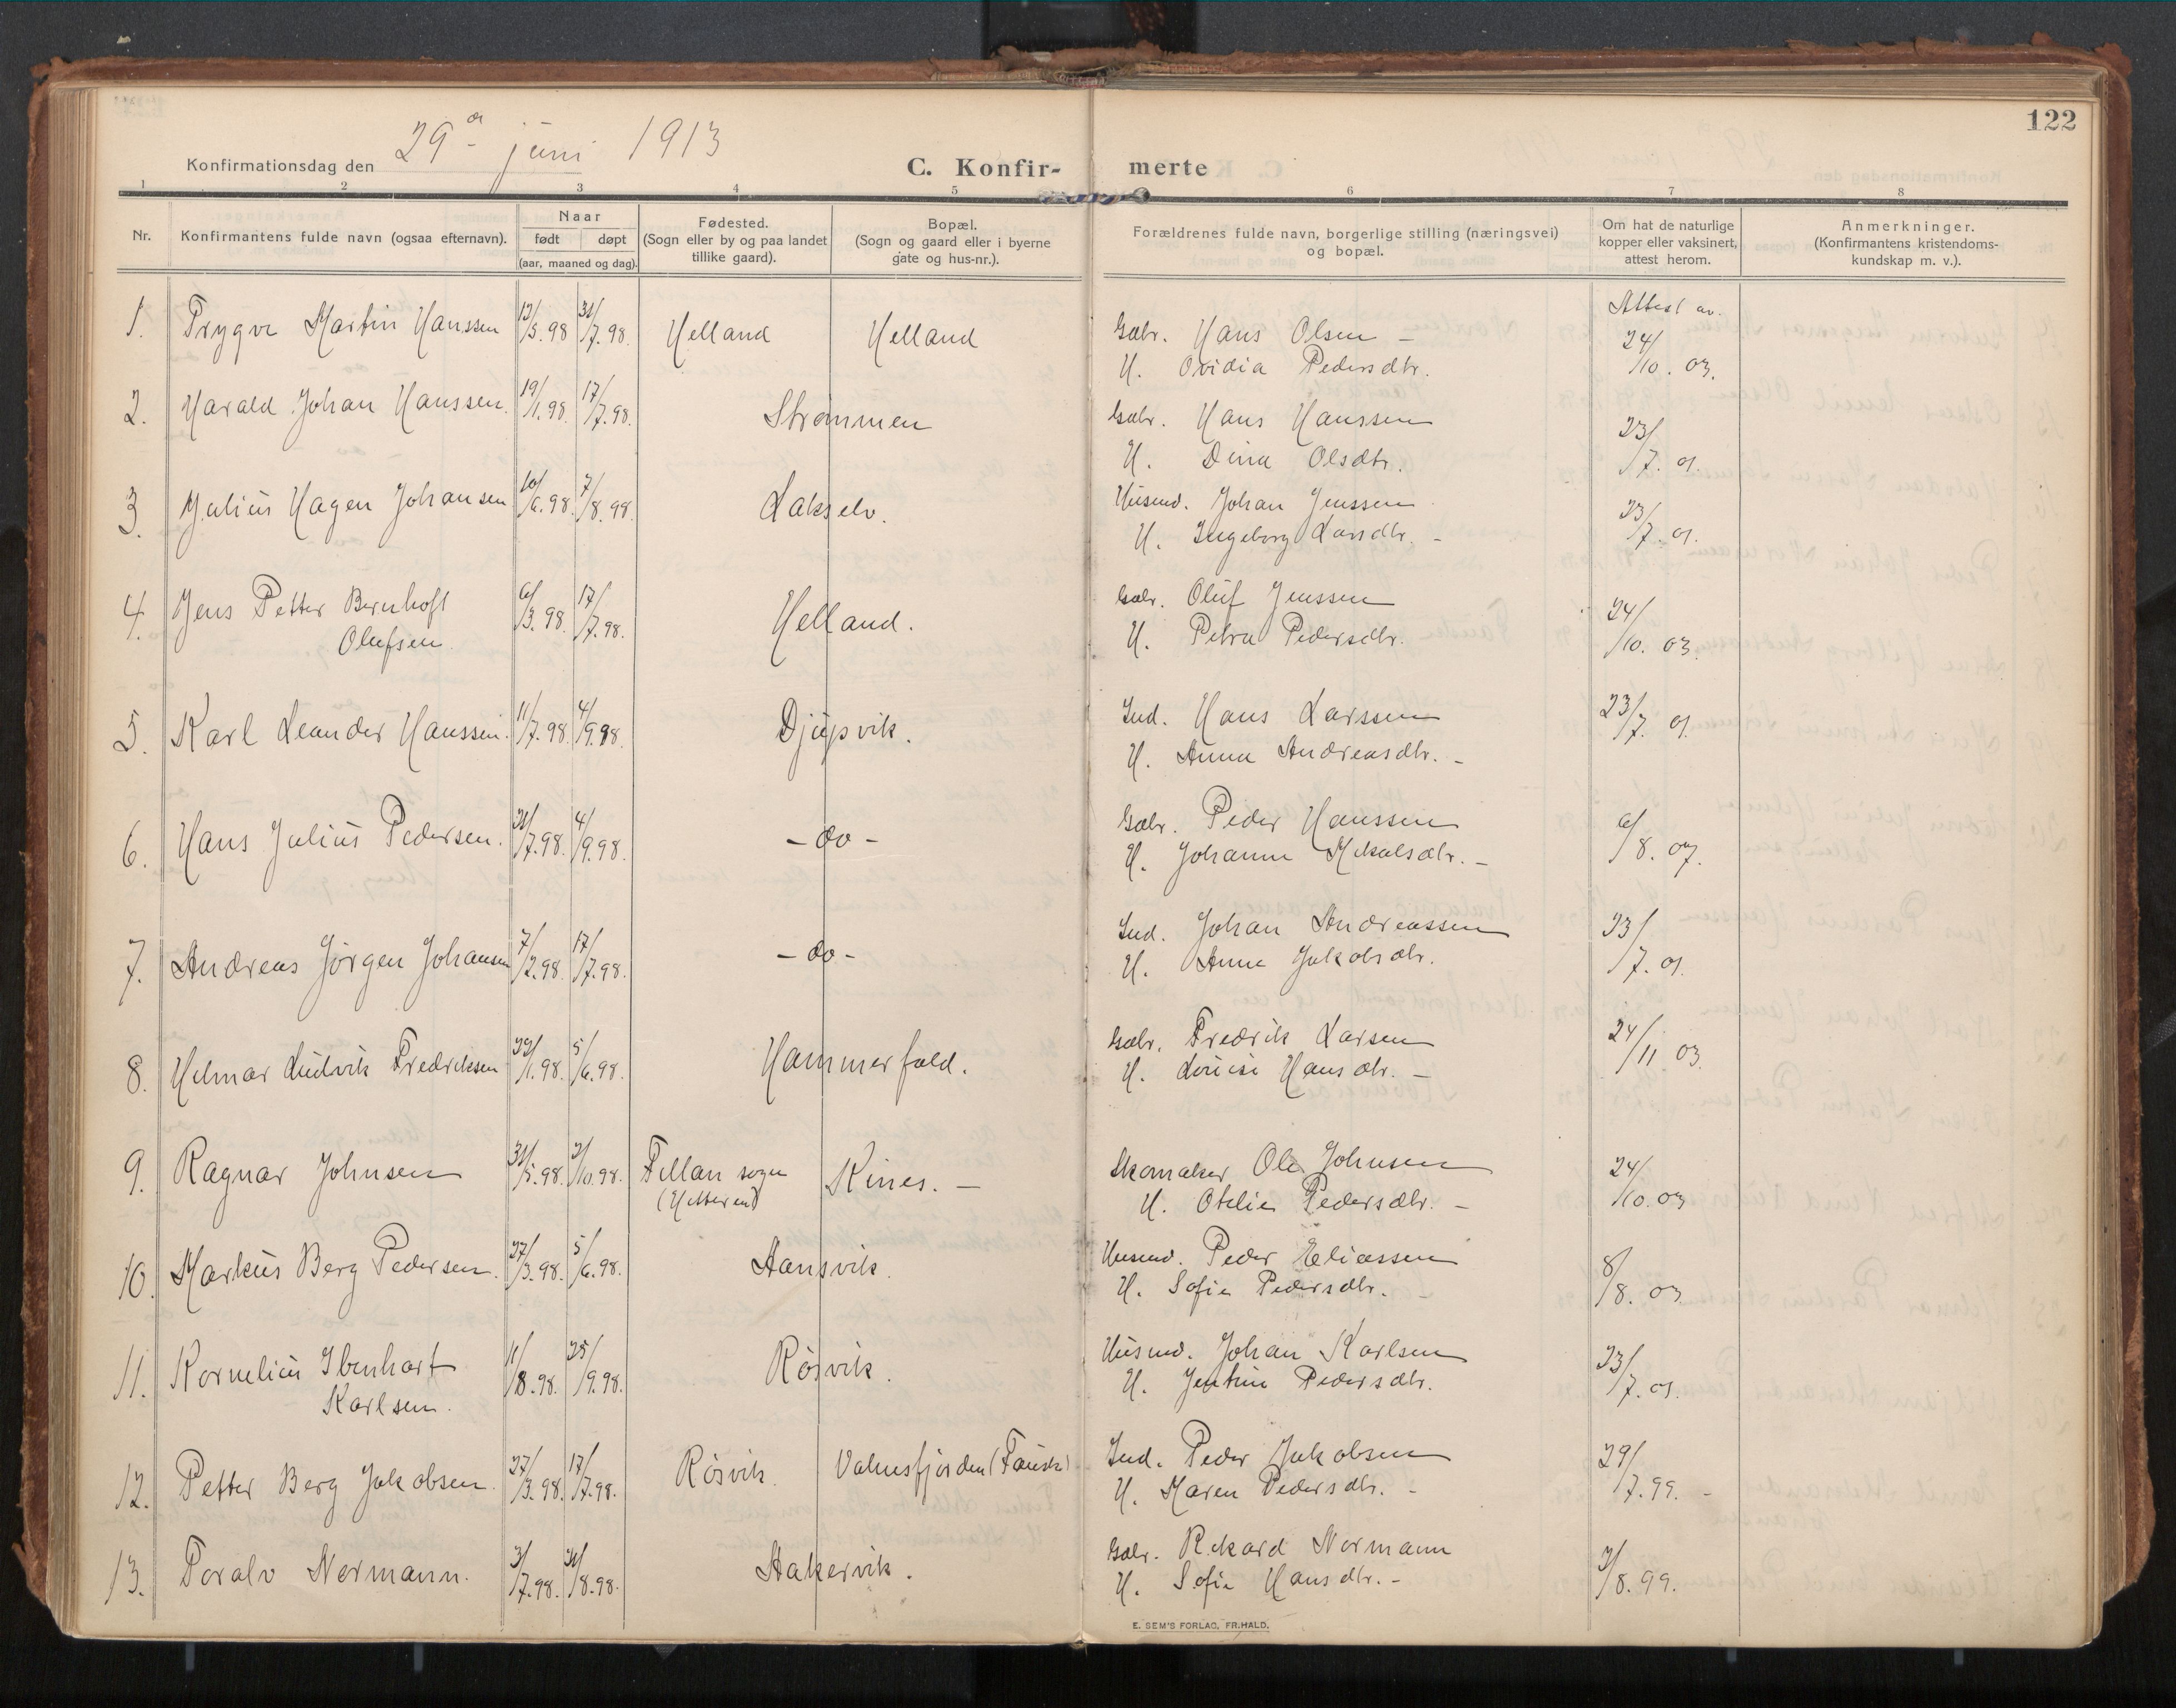 122
Konfirmationsdag den 29de juni 1913
C. Konfir- merte
1 2 3 4 5 6 7 8
Nr.
Konfirmantens fulde navn (ogsaa efternavn).
Naar
født døpt
(aar, maaned og dag).
Fødested.
(Sogn eller by og paa landet
tillike gaard).
Bopæl.
(Sogn og gaard eller i byerne
gate og hus-nr.).
Forældrenes fulde navn, borgerlige stilling (næringsvei)
og bopæl.
Om hat de naturlige
kopper eller vaksinert,
attest herom.
Anmerkninger.
(Konfirmantens kristendoms-
kundskap m. v.).
Attest av.
1. Trygve Martin Hanssen 13/5.98 31/7.98. Helland Helland Gbr. Hans Olsen - 24/10. 03.
H. Ovidia Pedersdtr.
2. Harald Johan Hanssen. 19/1.98 17/7.98. Strømmen Gbr. Hans Hanssen 23/7. 01.
H. Dina Olsdtr.
3. Julius Hagen Johansen 10/6.98. 7/8.98. Lakselv. Husmd. Johan Jenssen 23/7. 01.
H. Ingeborg Larsdtr. -
4. Jens Petter Bernhoft 6/3.98. 17/7.98. Helland. Gbr. Oluf Jenssen 24/10. 03.
Olufsen. H. Petra Pedersdtr.
5. Karl Leander Hanssen. 11/7.98. 4/9.98. Djupvik. Ind. Hans Larssen 23/7. 01.
H. Anna Andreasdtr. -
6. Hans Julius Pedersen. 31/7.98. 4/9.98. - do - Gbr. Peder Hanssen 6/8. 07.
H. Johanne Mikalsdtr. -
7. Andreas Jørgen Johansen 7/2.98. 17/7.98. - do - Ind. Johan Andreassen 23/7. 01.
H. Anna Jakobsdtr.
8. Hilmar Ludvik Fredriksen /1.98. 5/6.98. Hammerfald. Gbr. Fredrik Larsen 24/11 03.
H. Louise Hansdtr. -
9. Ragnar Johnsen 31/5.98. /10.98. Fillan sogn Kines. - Skomaker Ole Johnsen 24/10.03
(Hitteren) H. Otelie Pedersdtr. -
10. Markus Berg Pedersen. 27/3.98. 5/6.98. Aansvik. Husmd. Peder Eliassen 8/8. 03.
H. Sofie Pedersdtr. -
11. Kornelius Ibenhart 11/8.98. 25/9.98. Røsvik. Husmd. Johan Karlsen 23/7. 01.
Karlsen. H. Jentine Pedersdtr.
12. Petter Berg Jakobsen. 27/3.98. 17/7.98. Røsvik. Valnesfjorden (Fauske) Ind. Peder Jakobsen 29/7.99. -
H. Maren Pedersdtr. -
13. Toralv Normann. 3/7.98. /8.98. Stakervik. Gbr. Rikard Normann /8.99.
H. Sofie Hansdtr. -
E. SEM'S FORLAG, FR.HALD.